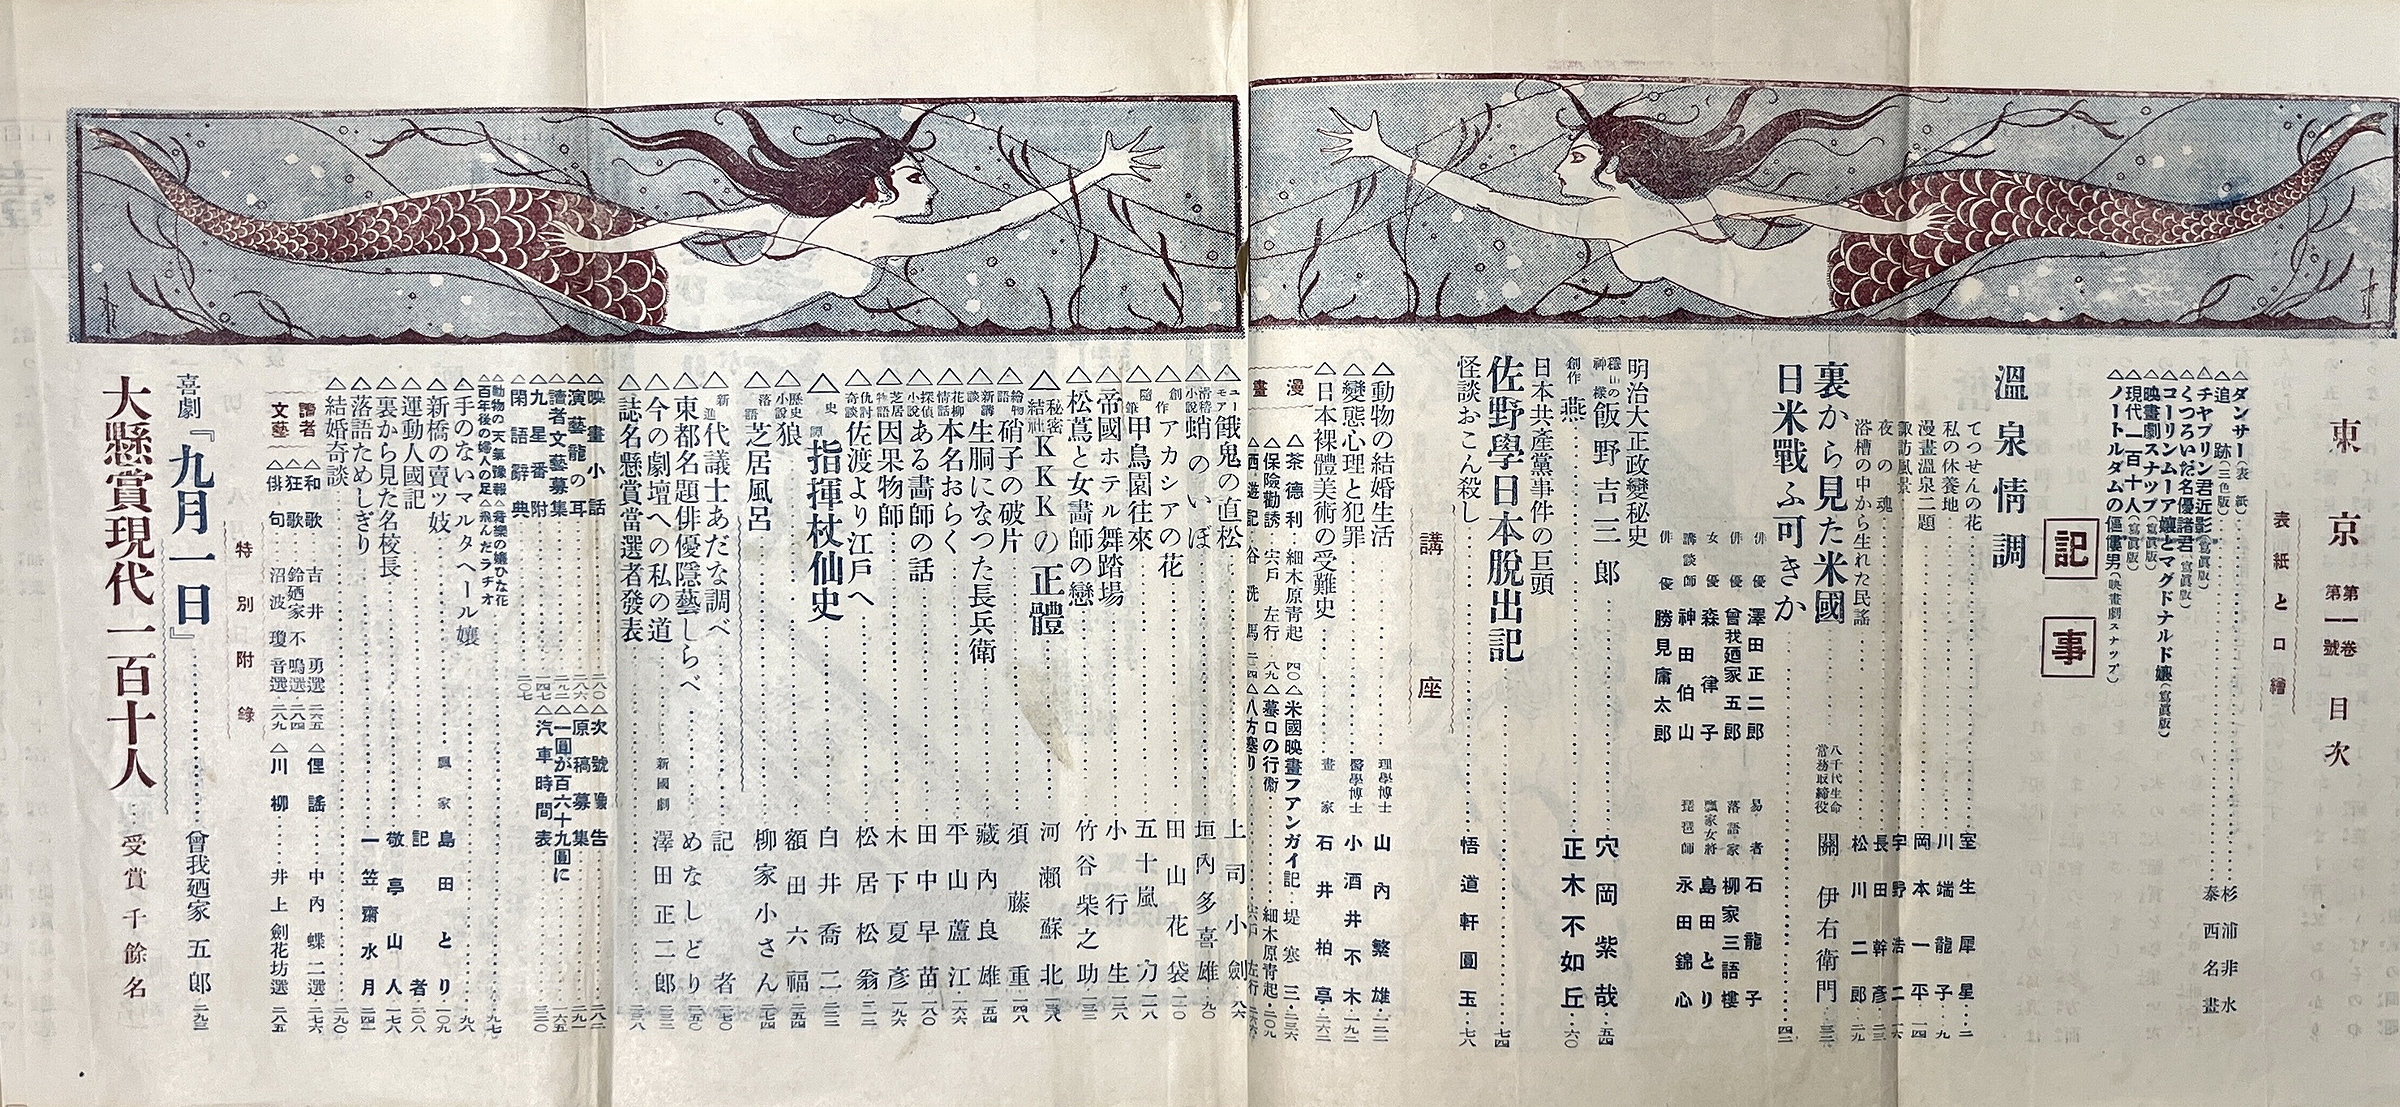 東京 第一卷 第一號 目次
表紙と口繪
△ダンサー(表紙)……杉浦非水
△追跡(三色版)……泰西名畫
△チヤプリン君近影(寫眞版)
△くつろいだ名優諸君(寫眞版)
△コーリンムーア孃とマグドナルド孃(寫眞版)
△映畫劇スナップ(寫眞版)
△現代一百十人(寫眞版)
△ノートルダムの傴僂男(映畫劇スナップ)
記事
溫泉情調
てつせんの花……室生犀星…二
私の休養地……川端龍子…九
漫畫溫泉二題……岡本一平…一四
諏訪風景……宇野浩二…一六
夜の魂……長田幹彥…二三
浴槽の中から生れた民謠……松川二郎…二九
裏から見た米國……八千代生命常務取締役 關伊右衛門…三三
日米戰ふ可きか……四二
俳優 澤田正二郎
俳優 曾我廼家五郎
女優 森律子
講談師 神田伯山
俳優 勝見庸太郎
易者 石龍子
落語家 柳家三語樓
瓢家女將 島田とり
琵琶師 永田錦心
明治大正政變秘史
穩田の神樣 飯野吉三郎……穴岡紫哉…五四
創作 燕……正木不如丘…六〇
日本共產黨事件の巨頭
佐野學日本脫出記……七四
怪談おこん殺し……悟道軒圓玉…七八
講座
△動物の結婚生活……理學博士 山內繁雄…一二二
△變態心理と犯罪……醫學博士 小酒井不木…一九二
△日本裸體美術の受難史……畫家 石井柏亭…二六二
漫畫
△茶德利…細木原青起 四〇
△米國映畫フアンガイ記…堤寒三…二三六
△保險勸誘 宍戶左行 八九
△蟇口の行衞……細木原青起…二〇九
△西遊記…谷洗馬
△八方塞り……宍戶左行
△ユーモア 餓鬼の直松……上司小劍 六六
△滑稽小說 蛸のいぼ……垣內多喜雄 九〇
△創作 アカシアの花……田山花袋
△隨筆 甲鳥園往來……五十嵐力
△帝國ホテル舞踏場……小行生
△松蔦と女畵師の戀……竹谷柴之助
△秘密結社 KKKの正體……河瀨蘇北
△繪物語 硝子の破片……須藤重
△新講談 生胴になつた長兵衛……藏內良雄
△花柳情話 本名おらく……平山蘆江
△探偵小說 ある畵師の話……田中早苗
△芝居物語 因果物師……木下夏彥
△仇討奇談 佐渡より江戶へ……松居松翁
△史譚 指揮杖仙史……白井喬二
△歷史小說 狼……額田六福
△落語 芝居風呂……柳家小さん
△新進代議士あだな調べ……記者
△東都名題俳優隱藝しらべ……めなしどり
△今の劇壇への私の道……新國劇 澤田正二郎
△誌名懸賞當選者發表……
△映畫小話……二八〇
△演藝龍の耳……二八六
△讀者文藝募集……二九二
△九星番附……一四七
△閑語辭典……二〇七
△次號豫告
△原稿募集
△一圓が百六十九圓に
△汽車時間表
△動物の天氣豫報△音樂の孃ひな花
△百年後の婦人の足△飛んだラヂオ
△手のないマルタヘール孃
△新橋の賣ッ妓……瓢家 島田とり
△運動人國記……記者
△裏から見た名校長……敬亭山人
△落語ためしぎり……一笠齋水月
△結婚奇談……二九〇
讀者文藝
△和歌 吉井勇選 二六五
△狂歌 鈴廼家不鳴選 二八四
△俳句 沼波瓊音選 二八九
△俚謠……中內蝶二選…二七六
△川柳……井上劍花坊選 二八五
特別附錄
喜劇『九月一日』……曾我廼家五郎
大懸賞現代一百十人…受賞千餘名